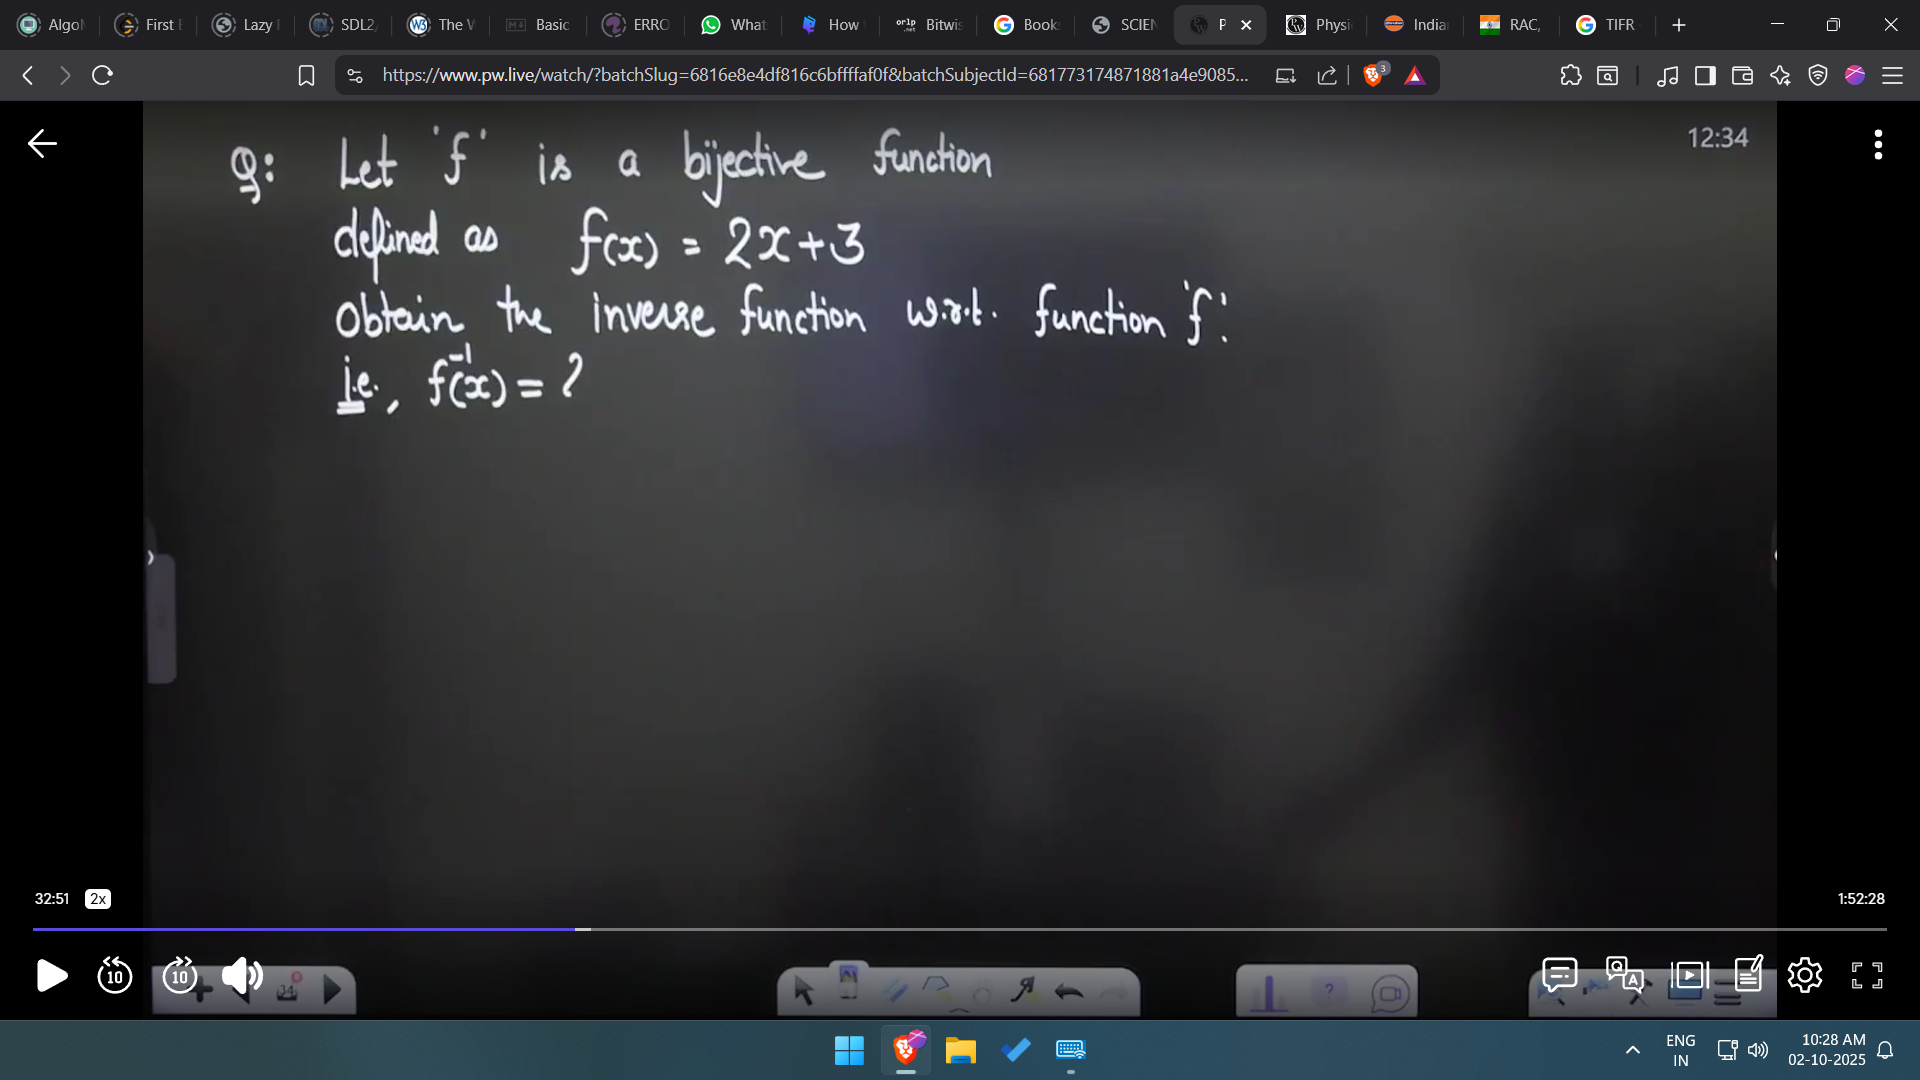 Algo
First
Lazy
SDL2
W3 The W
Basic
ERRO
What
How
orlp .net Bitwis
Book
SCIEN
P
Physi
India
RAC,
TIFR
https://www.pw.live/watch/?batchSlug=6816e8e4df816c6bffffaf0f&batchSubjectId=681773174871881a4e9085...
3
12:34
Q: Let 'f' is a bijective function
defined as f(x) = 2x+3
Obtain the inverse function w.r.t. function 'f'.
i.e., f⁻¹(x) = ?
32:51 2x
1:52:28
10 10
34
?
ENG
IN
10:28 AM
02-10-2025